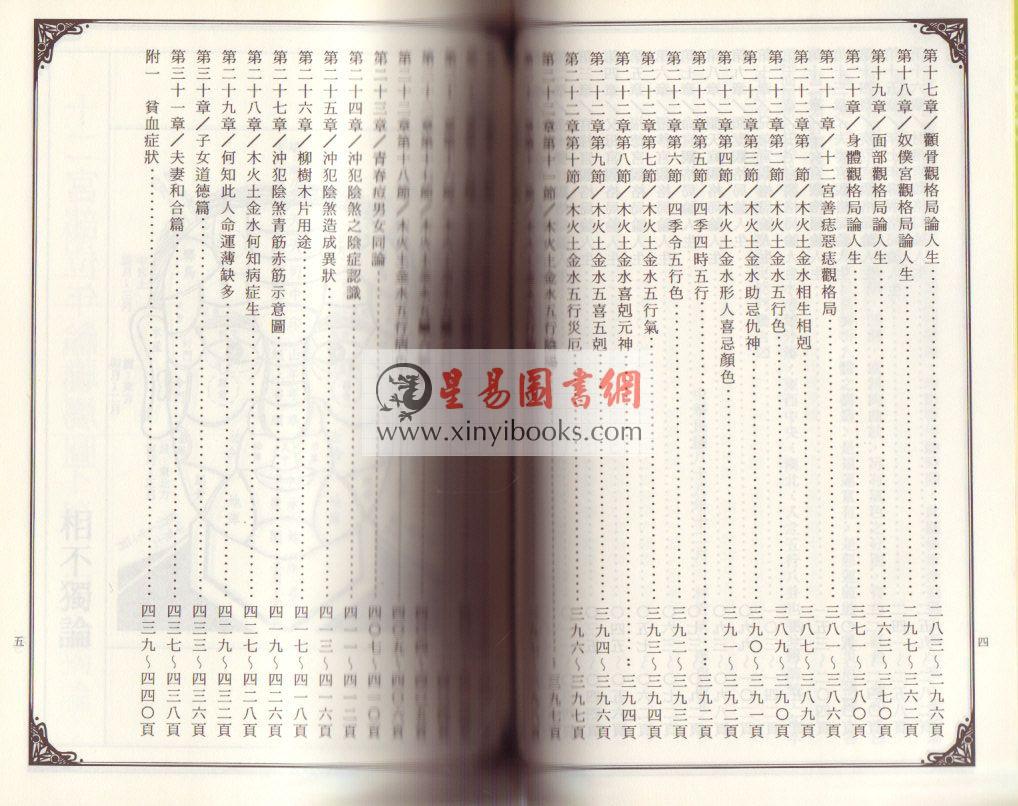 第十七章／顴骨觀格局論人生……二八三～二九六頁
第十八章／奴僕宮觀格局論人生……二九七～三六二頁
第十九章／面部觀格局論人生……三六三～三七０頁
第二十章／身體觀格局論人生……三七一～三八０頁
第二十一章／十二宮善痣惡痣觀格局……三八一～三八六頁
第二十二章第一節／木火土金水相生相剋……三八七～三八九頁
第二十二章第二節／木火土金水五行色……三八九～三九０頁
第二十二章第三節／木火土金水助忌仇神……三九０～三九一頁
第二十二章第四節／木火土金水形人喜忌顏色……三九一～三九二頁
第二十二章第五節／四季四時五行……三九二頁
第二十二章第六節／四季令五行色……三九二～三九三頁
第二十二章第七節／木火土金水五行氣……三九三～三九四頁
第二十二章第八節／木火土金水喜剋元神……三九四頁
第二十二章第九節／木火土金水五喜五剋……三九四～三九六頁
第二十二章第十節／木火土金水五行災厄……三九六～三九七頁
第二十二章第十一節／木火土金水五行陰陽
第二十三章／青春痘男女同論……四０七～四一０頁
第二十四章／沖犯陰煞之陰症認識……四一一～四一二頁
第二十五章／沖犯陰煞造成異狀……四一三～四一六頁
第二十六章／柳樹木片用途……四一七～四一八頁
第二十七章／沖犯陰煞青筋赤筋示意圖……四一九～四二六頁
第二十八章／木火土金水何知病症生……四二七～四二八頁
第二十九章／何知此人命運薄缺多……四二九～四三二頁
第三十章／子女道德篇……四三三～四三六頁
第三十一章／夫妻和合篇……四三七～四三八頁
附一　貧血症狀……四三九～四四０頁
四
五
星易圖書網
www.xinyibooks.com
相不獨論